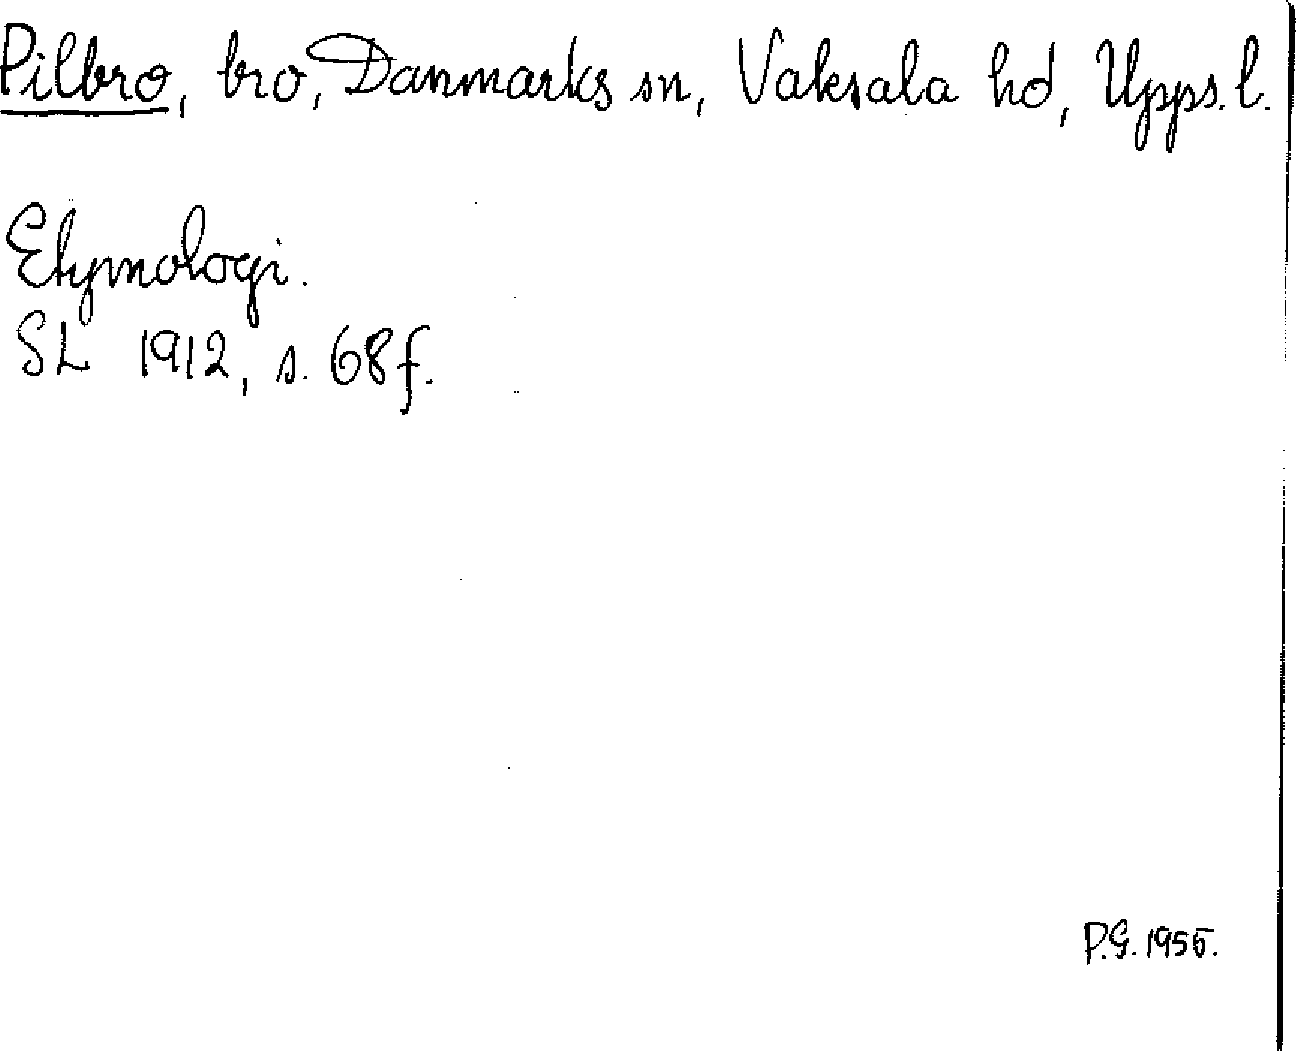 Pilbro, bro, Danmarks sn, Vaksala hd, Upps. l.
Etymologi.
SL 1912, s. 68f.
P.G. 1955.